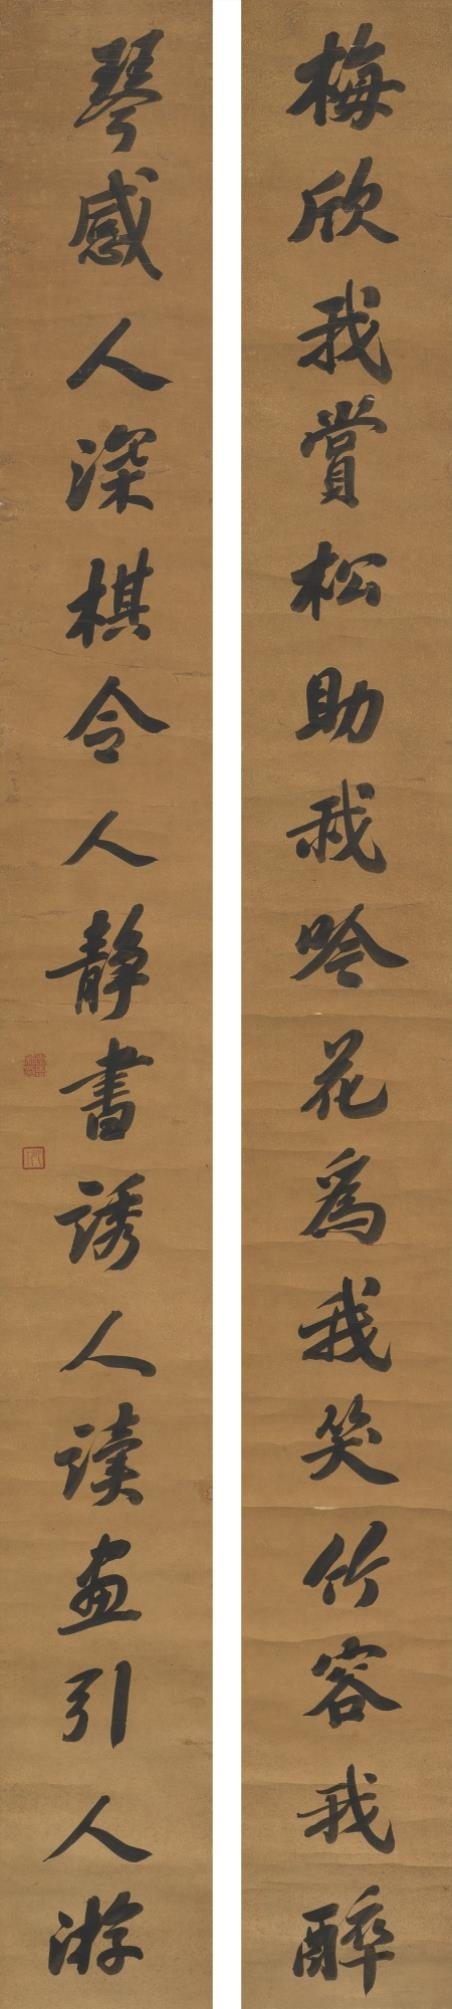 梅欣我賞松助我吟花為我笑竹容我醉
琴感人深棋令人靜書誘人读画引人游